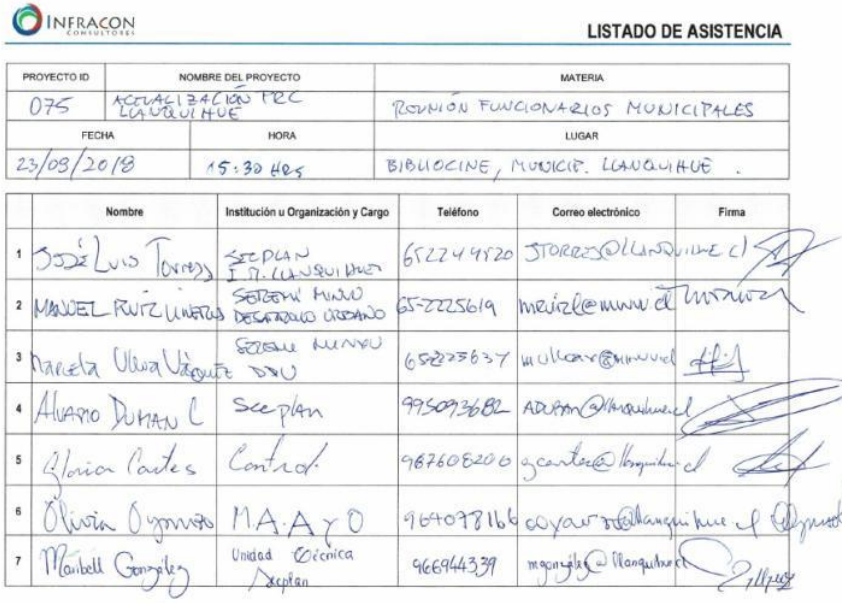 INFRACON
CONSULTORES
LISTADO DE ASISTENCIA
PROYECTO ID NOMBRE DEL PROYECTO MATERIA
075 ACTUALIZACIÓN PRC LLANQUIHUE REUNIÓN FUNCIONARIOS MUNICIPALES
FECHA HORA LUGAR
23/09/2018 15:30 HRS BIBLIOCINE, MUNICIP. LLANQUIHUE.
Nombre Institución u Organización y Cargo Teléfono Correo electrónico Firma
1 José Luis Torres SECPLAN I.M. LLANQUIHUE 652244520 JTORRES@LLANQUIHUE.cl
2 MANUEL RUIZ SEREMI MINVU DESARROLLO URBANO 65-2225619 mruizl@minvu.cl
3 Marcela Ulloa Vásquez SEREMI MINVU DDU
4 ALVARO DURAN C Secplan 995093682 ADURAN@llanquihue.cl
5 Gloria Cortes Control 987608200 gcortes@llanquihue.cl
6 Olivia Oyarzo M.A.A y O 964078166 @llanquihue.cl
7 Maribell González Unidad Técnica Secplan 966944339 mgonzalez@llanquihue.cl